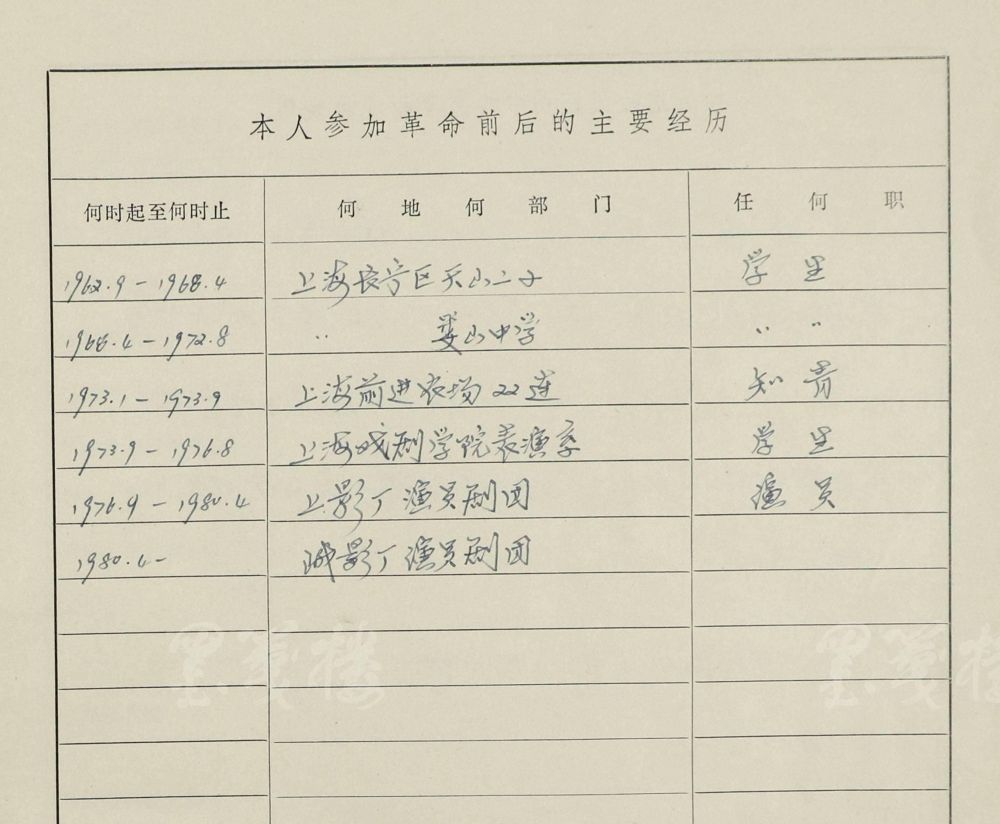 本人参加革命前后的主要经历
何时起至何时止 何地何部门 任何职
1962.9 - 1968.4 上海长宁区天山二小 学生
1968.4 - 1972.8 〃 娄山中学 〃 〃
1973.1 - 1973.9 上海前进农场22连 知青
1973.9 - 1976.8 上海戏剧学院表演系 学生
1976.9 - 1980.4 上影厂演员剧团 演员
1980.4 - 峨影厂演员剧团
墨笺楼 墨笺楼